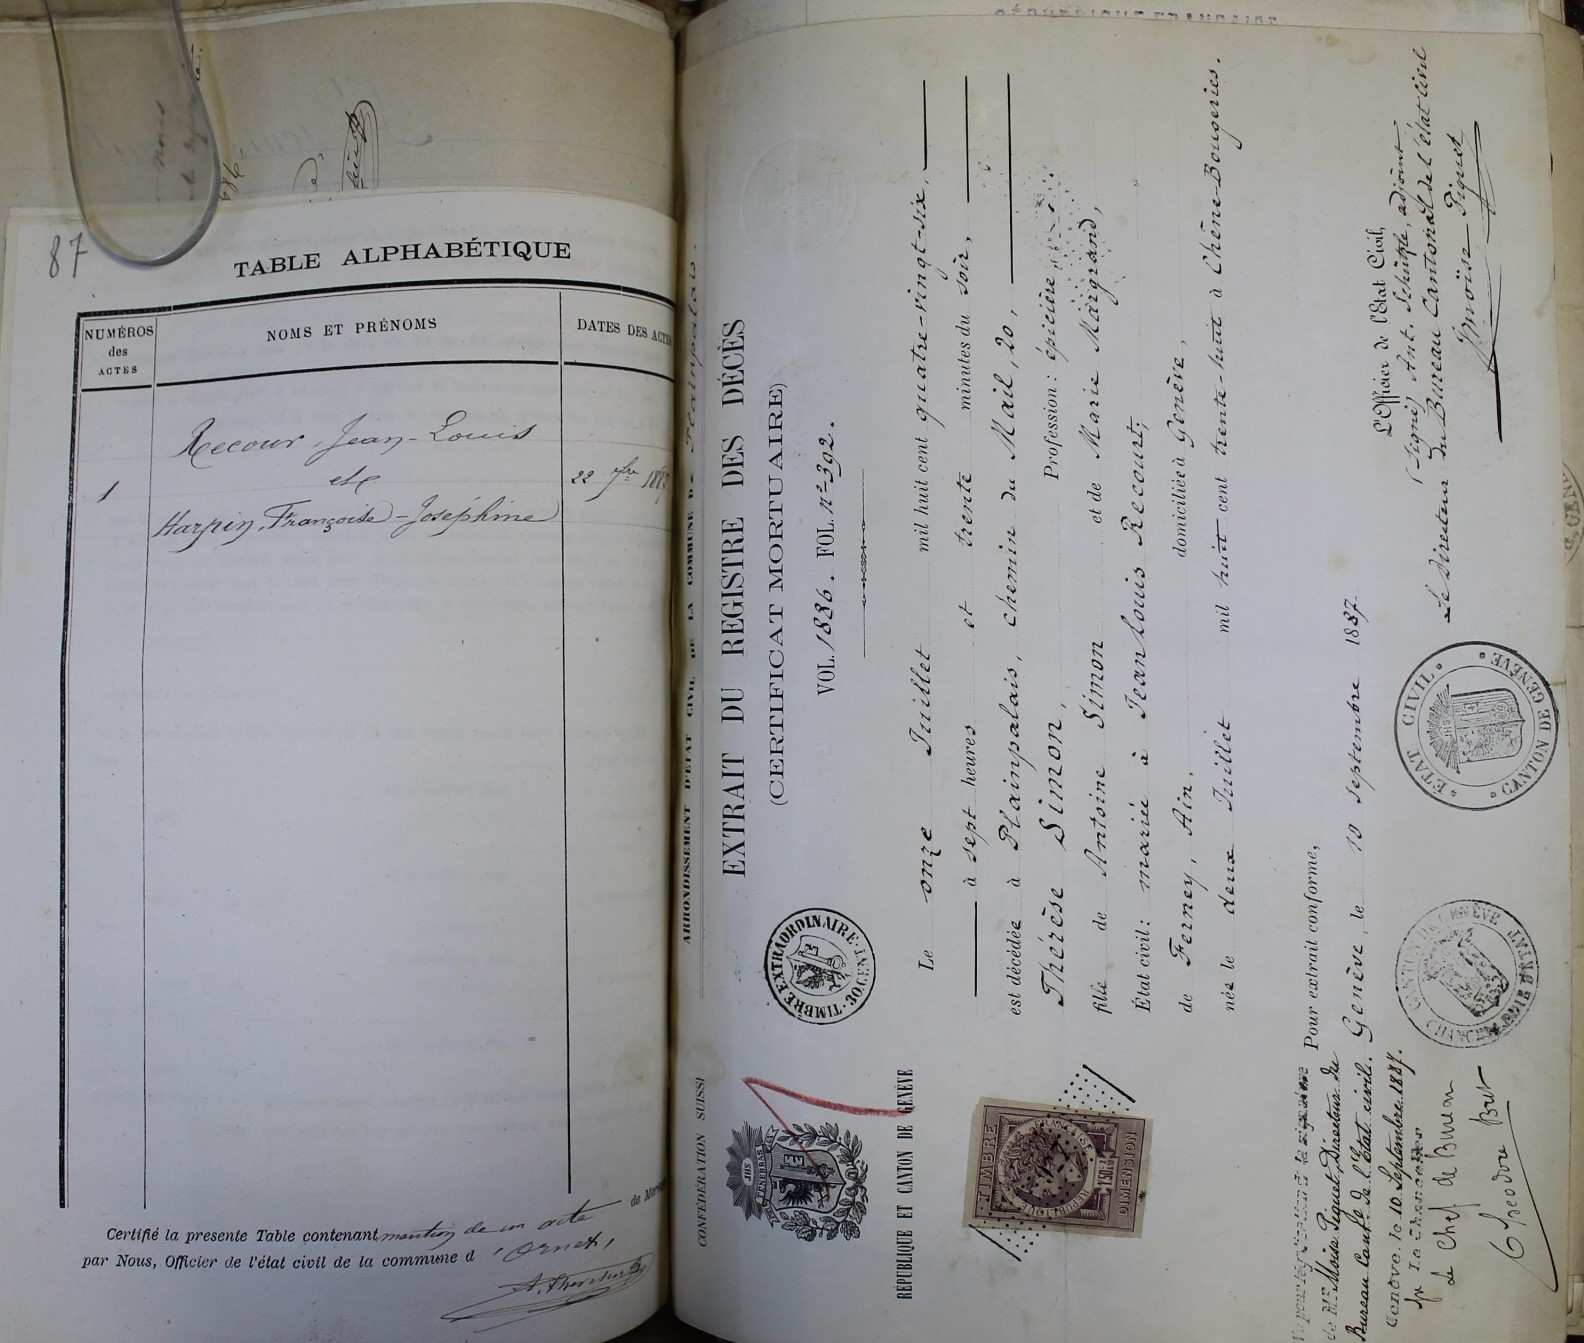 87
TABLE ALPHABÉTIQUE
NUMÉROS des ACTES
NOMS ET PRÉNOMS
DATES DES ACTES
Recour, Jean-Louis
et
1
22 7bre 1887
Harpin, Françoise-Joséphine
Certifié la presente Table contenant mention de un acte de
par Nous, Officier de l'état civil de la commune d'Ornex,
CONFÉDÉRATION SUISSE
RÉPUBLIQUE ET CANTON DE GENÈVE
ARRONDISSEMENT D'ÉTAT CIVIL DE LA COMMUNE DE Plainpalais.
EXTRAIT DU REGISTRE DES DÉCÈS
(CERTIFICAT MORTUAIRE)
VOL. 1886. FOL. n° 392.
TIMBRE EXTRAORDINAIRE · 30 CENT.
POST TENEBRAS LUX
TIMBRE
RÉPUBLIQUE FRANÇAISE
DIMENSION
Le onze Juillet mil huit cent quatre-vingt-six,
à sept heures et trente minutes du soir,
est décédée à Plainpalais, chemin du Mail, 20,
Thérèse Simon, Profession : épicière
fille de Antoine Simon et de Marie Maigrand,
État civil : mariée à Jean Louis Recourt,
de Ferney, Ain, domiciliée à Genève,
née le deux Juillet mil huit cent trente-huit à Chêne-Bougeries.
Pour extrait conforme,
Genève, le 10 septembre 1887.
L'Officier de l'État Civil,
(signé) Ant. Schütté, adjoint
Le Directeur du Bureau Cantonal de l'état civil
Moïse Piguet
ÉTAT CIVIL
CANTON DE GENÈVE
Vu pour légalisation de la signature
de Mr Moïse Piguet, Directeur du
Bureau Cant. de l'Etat civil.
Genève, le 10 Septembre 1887.
pr La Chancellerie
Le Chef de Bureau
Theodore Bret